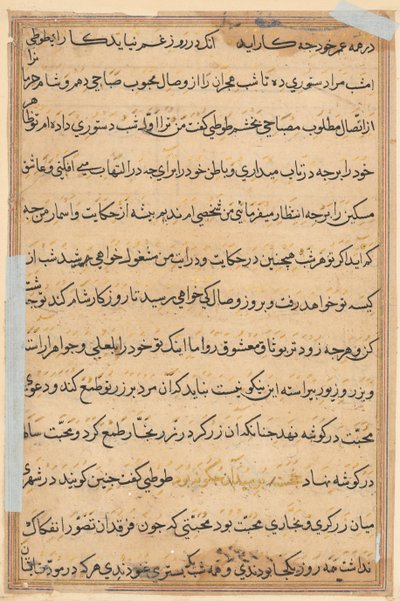 در همه عمر خود چه کار آید آنک در روز غم نیاید کار ای طوطی
امشب مرا دستوری ده تا شب هجران را از وصال محبوب صباحی دهم و شام
از اتصال مطلوب مصباحی بخشم طوطی کفت من ترا اول شب دستوری داده ام تو
خود را برجه در تاب میداری و باطن خود را برای چه در التهاب می افکنی و عاشق
مسکین را برجه انتظار میفرمائی من شخصی ام ندیم پیشه از حکایت و اسمار من چه
کم آید اکر تو هر شب همچنین در حکایت و درایت من مشغوله خواهی شد شب از
کیسه تو خواهد رفت و بروز وصال کی خواهی رسید تا روز کار شام کند تو
کن و هرچه زودتر بوثاق معشوق رو اما اینک تو خود را بلعلی و جواهر آراسته
و بزر و زیور پیراسته این نیکو نیست نباید که آن مرد بر زر تو طمع کند و دعوی
محبت در کوشه نهد چنانکه آن زرکر در زر نجار طمع کرد و محبت ساله
در کوشه نهاد طوطی کفت چنین کویند در شهری
میان زرکری و نجاری محبت بود محبتی که چون فرقدان تصور انفکاک
نداشت همه روز یکجا بودندی و همه شب بیک بستری غنودندی هرکه در مودت